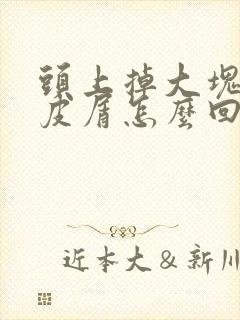 頭上掉大塊
皮屑怎麼回
近本大＆新川